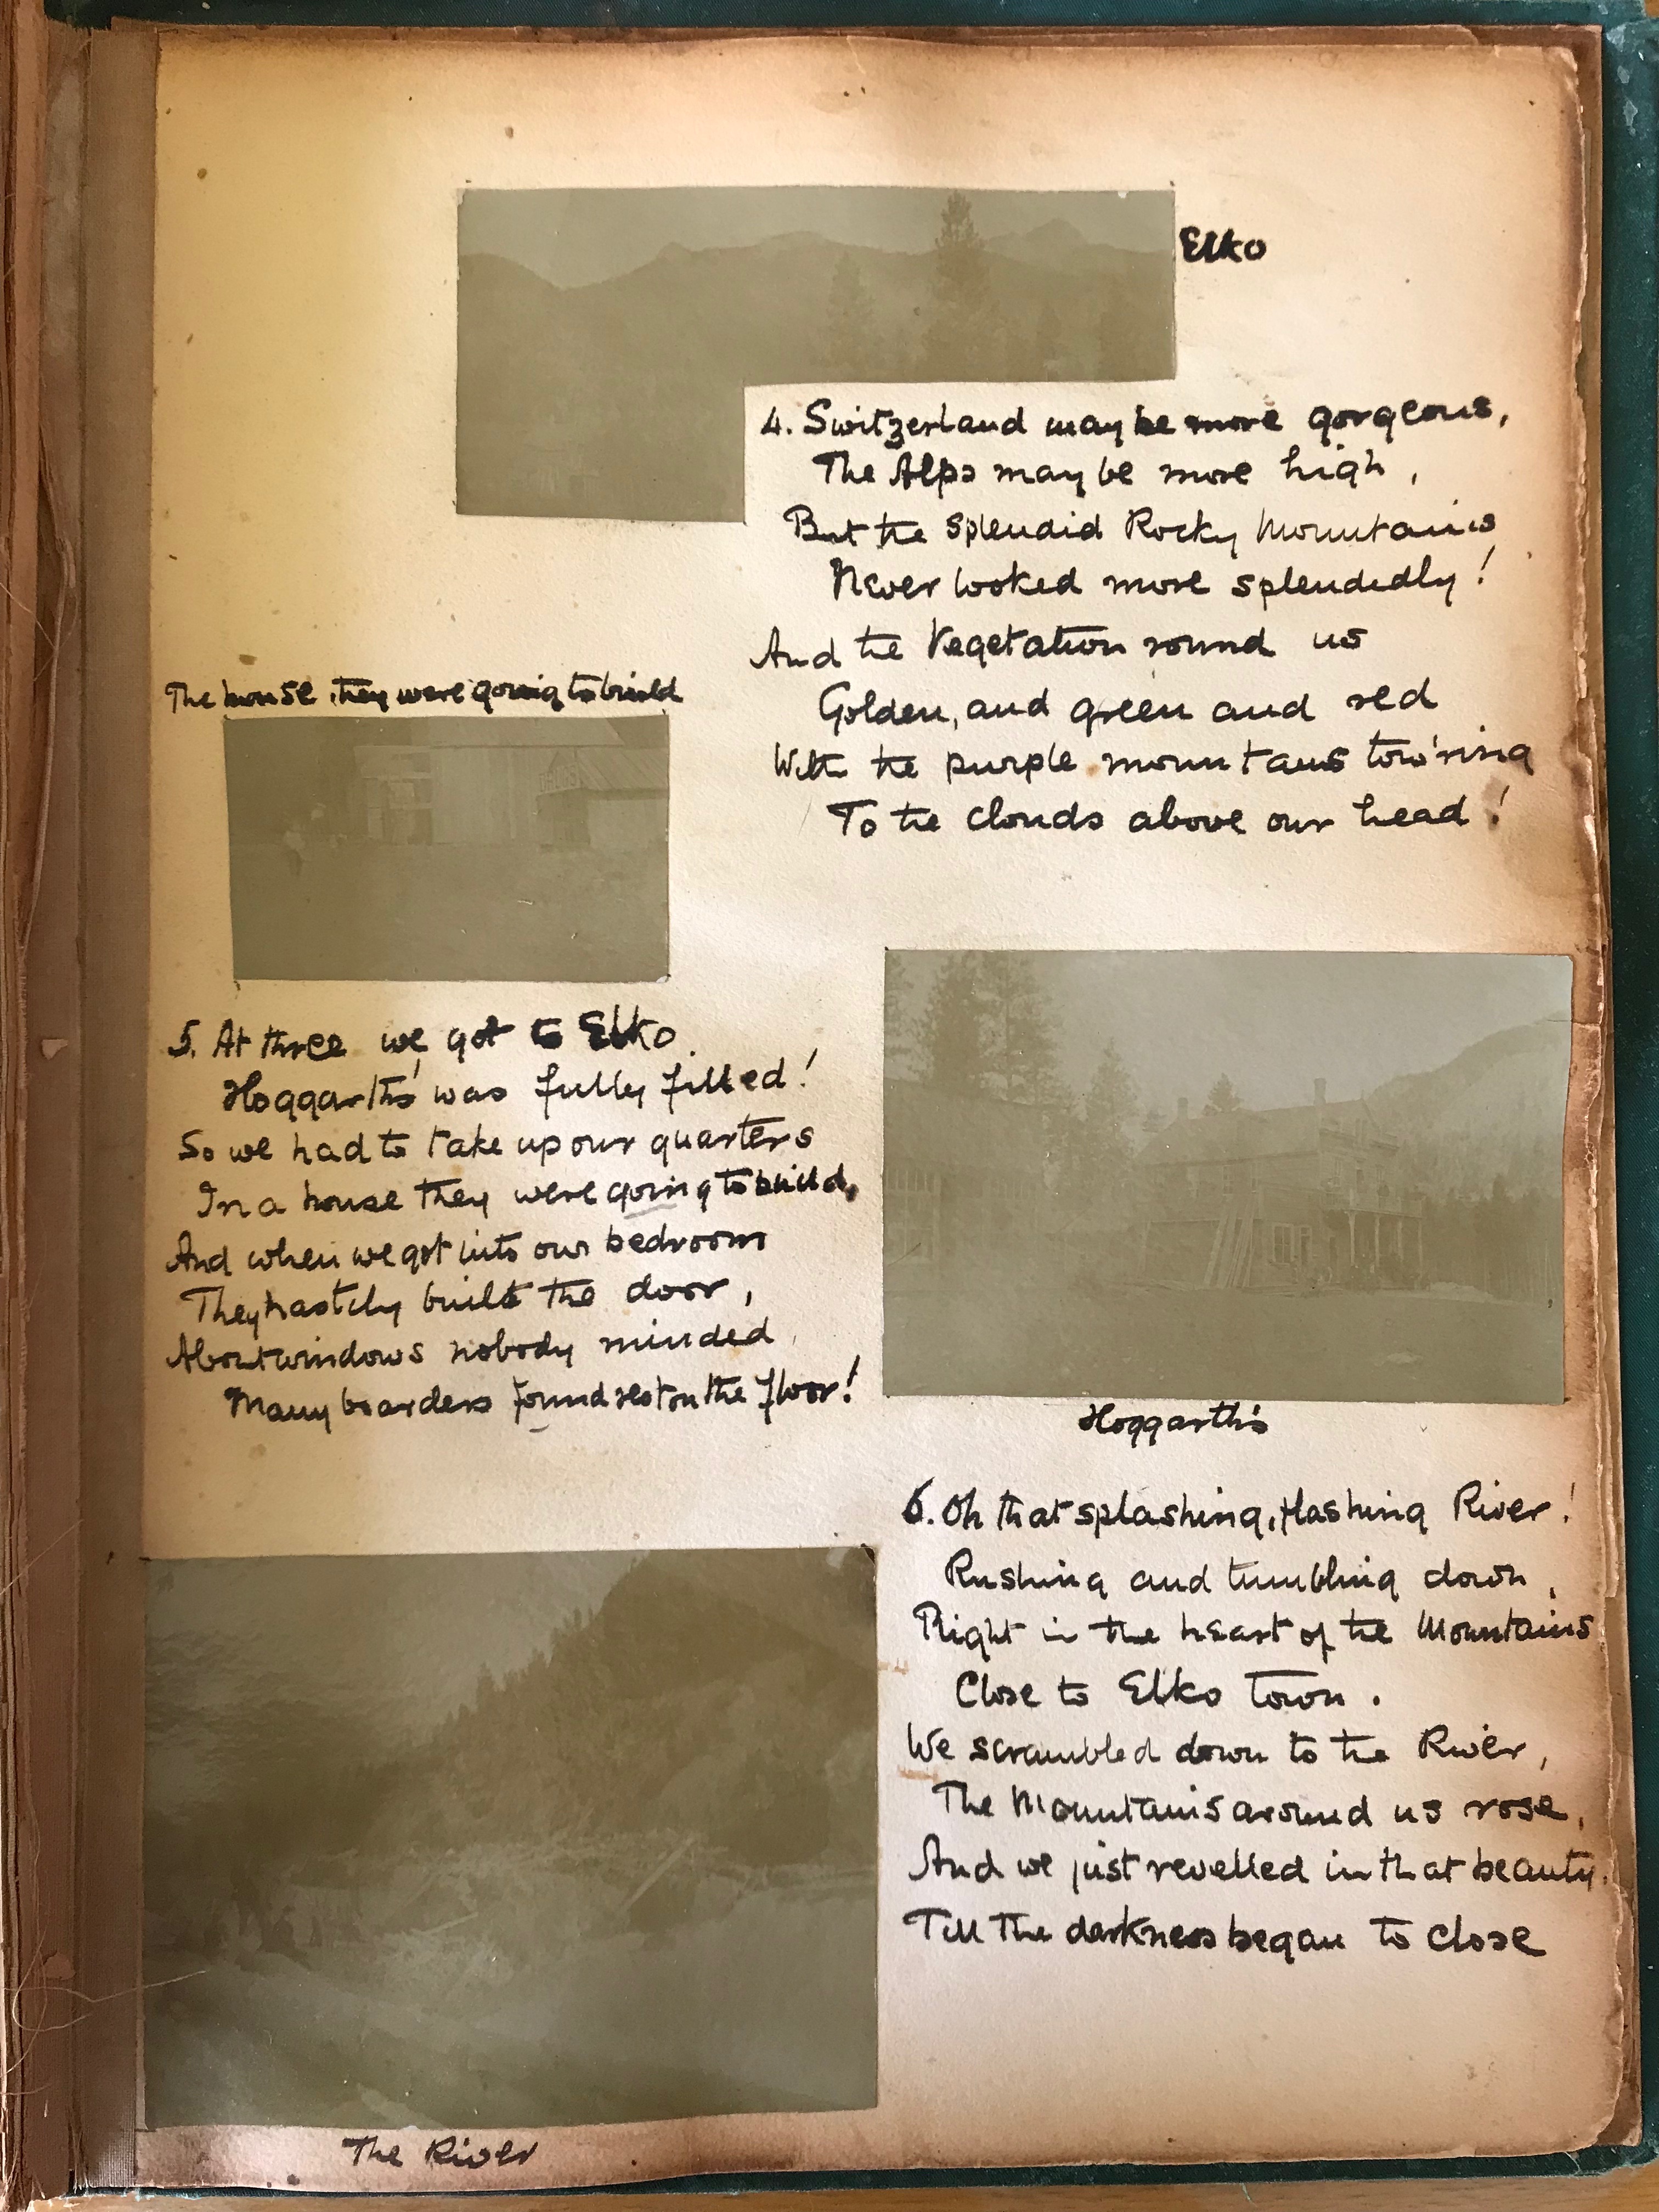 Elko
4. Switzerland may be more gorgeous,
The Alps may be more high,
But the splendid Rocky Mountains
Never looked more splendidly!
And the Vegetation round us
Golden, and green and red
With the purple mountains tow'ring
To the clouds above our head!
The house they were going to build
5. At three we got to Elko.
Hoggarth's was fully filled!
So we had to take up our quarters
In a house they were going to build,
And when we got into our bedroom
They hastily built the door,
About windows nobody minded,
Many boarders found rest on the floor!
Hoggarth's
6. Oh that splashing, flashing River!
Rushing and tumbling down,
Right in the heart of the Mountains
Close to Elko town.
We scrambled down to the River,
The Mountains around us rose,
And we just revelled in that beauty,
Till the darkness began to close
The River